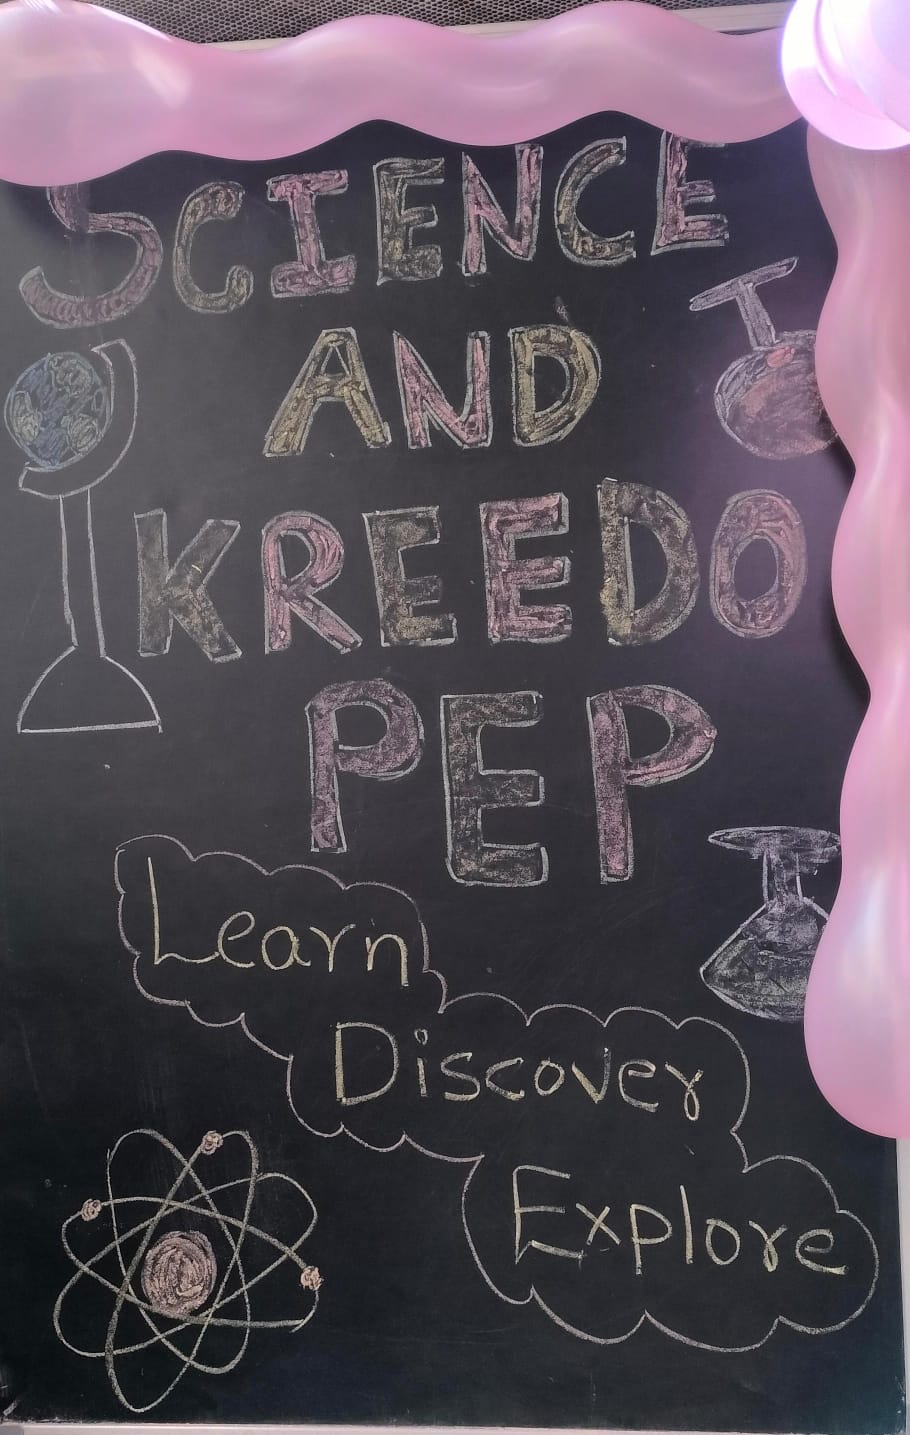 SCIENCE
AND
KREEDO
PEP
Learn
Discover
Explore